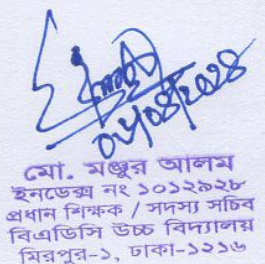 ০৮/০৪/২০২৪
মো. মঞ্জুর আলম
ইনডেক্স নং ১০১২৯২৮
প্রধান শিক্ষক / সদস্য সচিব
বিএডিসি উচ্চ বিদ্যালয়
মিরপুর-১, ঢাকা-১২১৬